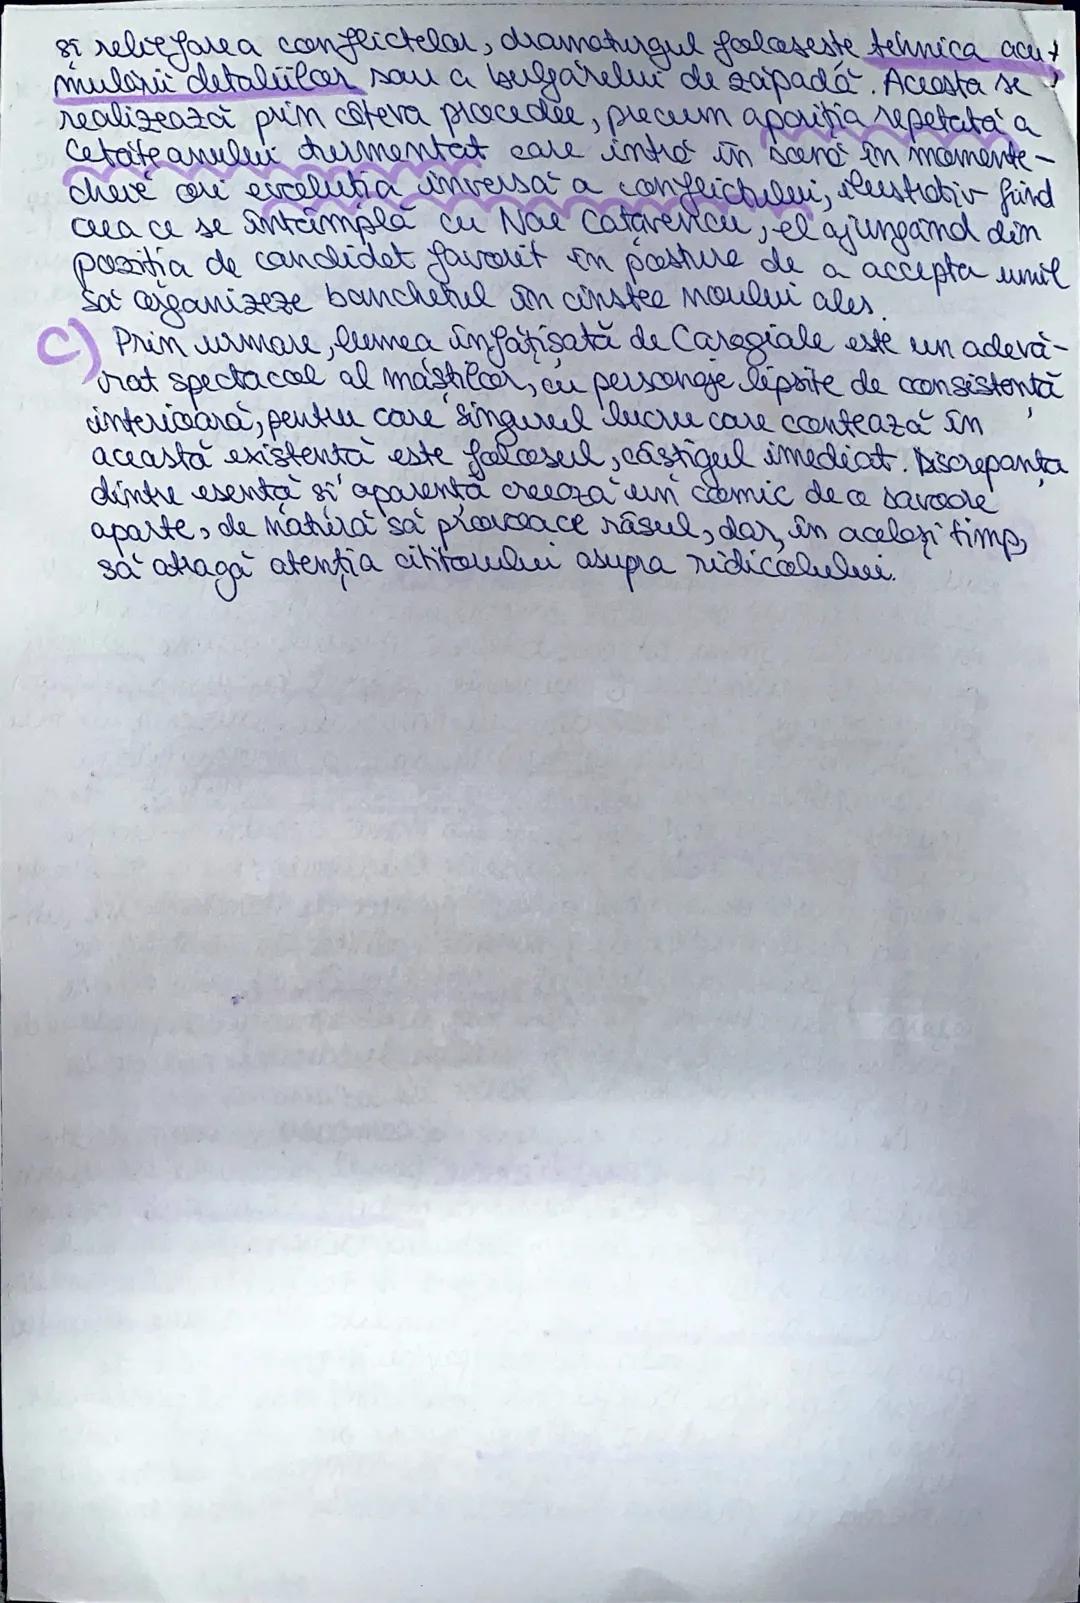 și reliefarea conflictelor, dramaturgul folosește tehnica acu-
mulării detaliilor sau a bulgărelui de zăpadă. Aceasta se
realizează prin câteva procedee, precum apariția repetată a
Cetățeanului turmentat care intră în scenă în momente-
cheie ori evoluția inversă a conflictului, ilustrativ fiind
ceea ce se întâmplă cu Nae Cațavencu, el ajungând din
poziția de candidat favorit în postura de a accepta umil
să organizeze banchetul în cinstea noului ales.
C) Prin urmare, lumea înfățișată de Caragiale este un adevă-
rat spectacol al măștilor, cu personaje lipsite de consistență
interioară, pentru care singurul lucru care contează în
această existență este folosul, câștigul imediat. Discrepanța
dintre esență și aparență creează un comic de o savoare
aparte, de natură să provoace râsul, dar, în același timp,
să atragă atenția cititorului asupra ridicolului.